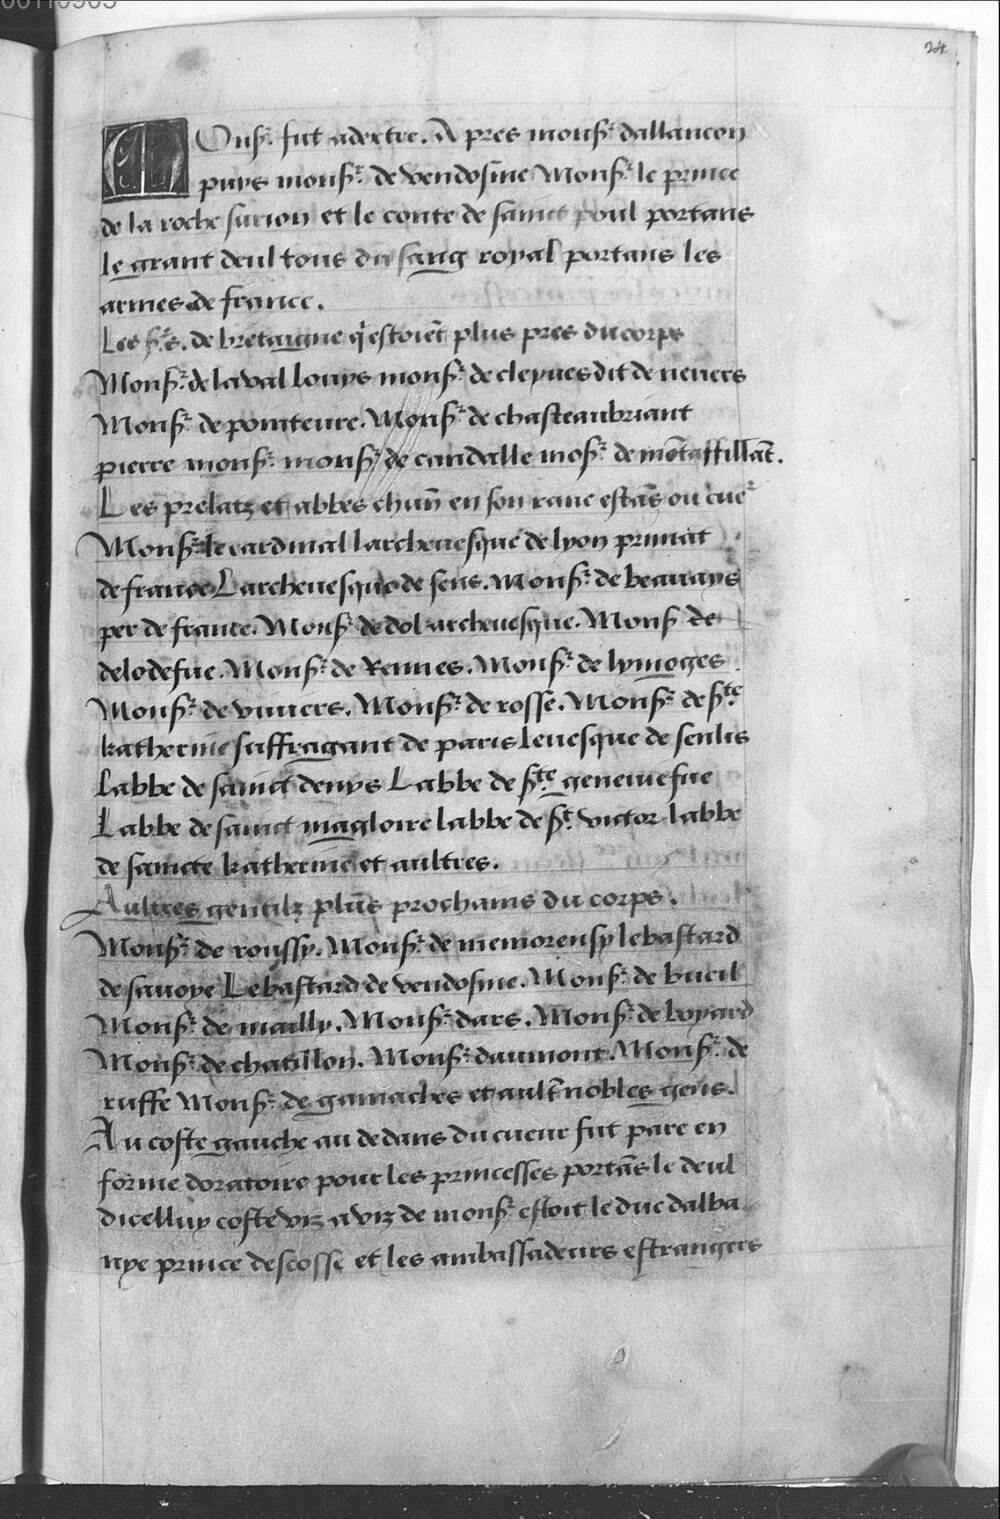 00110905
24.
MOnsr. fut adextre. A pres monsr dallancon
puys monsr. de vendosme Monsr le prince
de la roche surion et le conte de sainct poul portans
le grant deul tous du sang royal portans les
armes de france.
Les srs. de bretaigne q estoiēt plus pres du corps
Monsr. de laval Louys monsr de cleyues dit de nevers
Monsr de pointeure. Monsr de chasteaubriant
pierre monsr. monsr de candalle mosr de mōtaffillāt.
Les prelatz et abbes chūn en son ranc estās ou cuer
Monsr le cardinal larchevesque de lyon primat
de france Larchevesque de sens. Monsr de beauays
per de france. Monsr de dol archevesque. Monsr de
delodesue. Monsr de Rennes. Monsr de lymoges
Monsr de viviers. Monsr de rosse. Monsr de ste
katherine suffragant de paris levesque de senlis
Labbe de sainct denys Labbe de ste genevuefue
Labbe de sainct magloire labbe de st. victor labbe
de saincte katherine et aultres.
Aultres gentilz plus prochains du corps.
Monsr de roussy. Monsr de memorensy lebastard
de savoye Lebastard de vendosme. Monsr de bueil
Monsr de mailly. Monsr dars. Monsr de boyard
Monsr de chatillon. Monsr daumont. Monsr de
ruffe Monsr de gamaches et ault nobles gens.
Au coste gauche au dedans du cueur fut pare en
forme doratoire pour les princesses portās le deul
dicelluy coste viz aviz de monsr estoit le duc dalba
nye prince descosse et les ambassadeurs estrangers